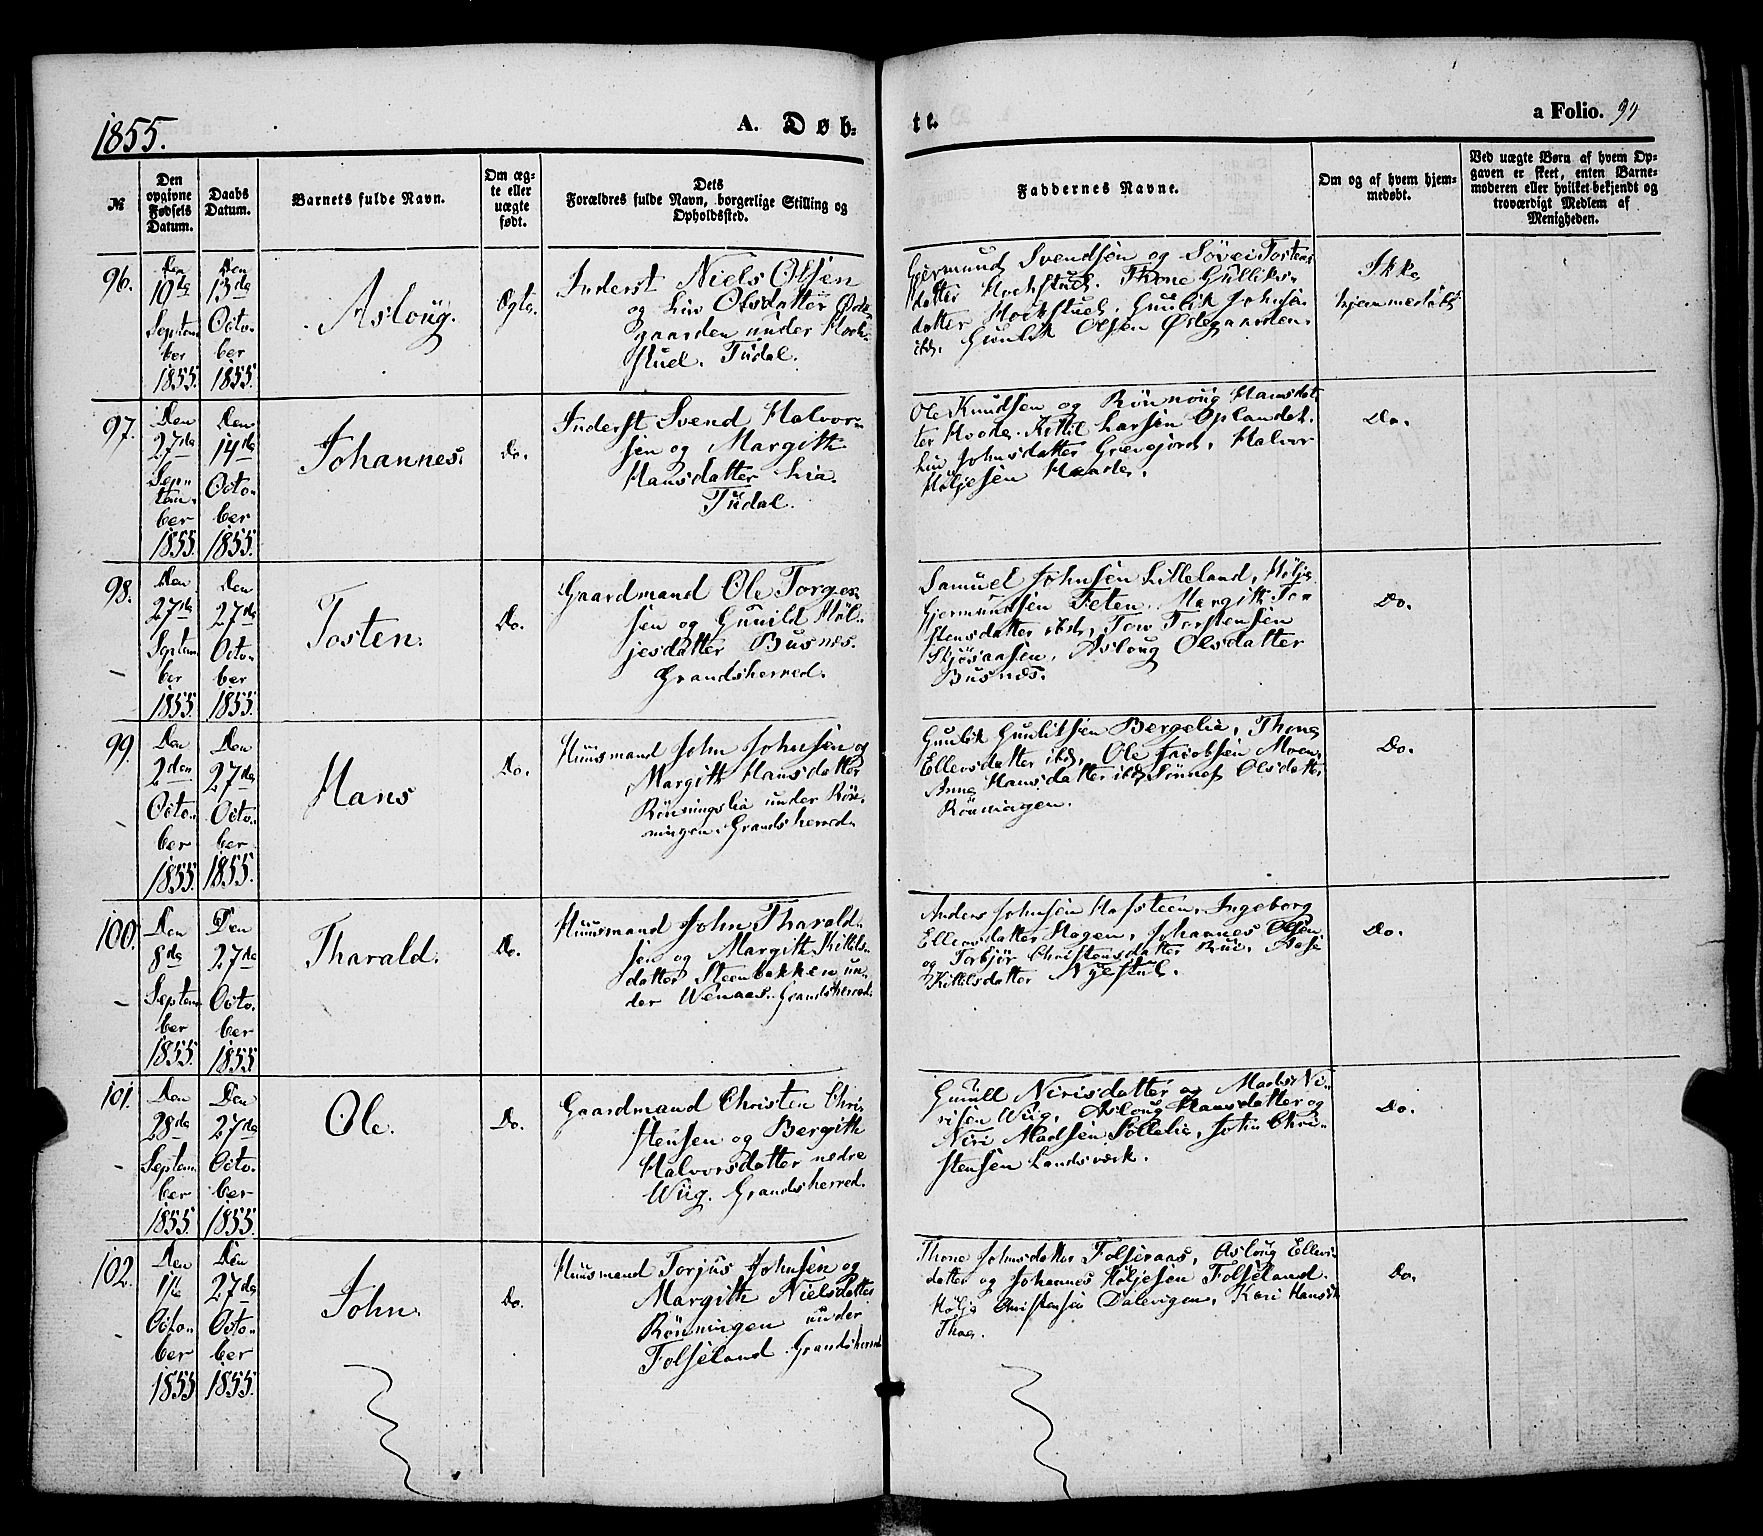 1855.
A. Døb-
te.
a Folio. 94
№
Den opgivne Fødsels Datum.
Daabs Datum.
Barnets fulde Navn.
Om ægte eller uægte født.
Dets Forældres fulde Navn, borgerlige Stilling og Opholdssted.
Faddernes Navne.
Om og af hvem hjemmedøbt.
Ved uægte Børn af hvem Opgaven er skeet, enten Barnemoderen eller hvilket bekjendt og troværdigt Medlem af Menigheden.
96.
Den
19da
Septem
ber
1855.
Den
13da
Octo
ber
1855.
Aslaug.
Ægte.
Inderst Niels Olsen
og Liv Olsdatter Øde
gaarden under Hovk
stuel. Tudal.
Gjermund Svendsen og Søvei Tostens
datter Hockstuel. Thone Gulliks
datter Hockstuel. Guulik Johnsen
ibd. Guulik Olsen Ødegaarden.
Ikke
hjemmedøbt
97.
Den
27da
Sep
tem
ber
1855.
Den
14da
Octo
ber
1855.
Johannes.
Do.
Inderst Svend Halvor
sen og Margith
Hansdatter Lia.
Tudal.
Ole Knudsen og Rønnoug Hansdat
ter Hovde. Kittil Larsen Oplandet.
Liv Johnsdatter Grævejord. Halvor
Høljesen Haade.
Do.
98.
Den
27da
Septem
ber
1855.
Den
27da
Octo
ber
1855.
Tosten.
Do.
Gaardmand Ole Torger
sen og Gunild Høl
jesdatter Busnes.
Grandsherred.
Samuel Johnsen Lilleland, Hølje
Gjermundsen Feten. Margith To
stensdatter ibd, Tov Torstensen
Skjøsaasen, Aslaug Olsdatter
Busnæs.
Do.
99.
Den
2den
Octo
ber
1855.
Den
27da
Octo
ber
1855.
Hans
Do.
Huusmand John Johnsen og
Margith Hansdatter
Rønningslia under Røn
ningen. Grandsherred.
Guulik Guuliksen Bergelie, Thone
Ellevsdatter ibd, Ole Jacobsen Moen,
Anne Hansdatter ibd, Sønnef Olsdatter
Rønningen.
Do.
100.
Den
8da
Septem
ber
1855.
Den
27da
Octo
ber
1855.
Tharald.
Do.
Huusmand John Tharald
sen og Margith Kittils
datter Steenbakken un
der Wenaas. Grandsherred.
Anders Johnsen Hafsteen, Ingeborg
Ellevsdatter Hagen, Johannes Olsen
og Torbjør Christensdatter Rue, Aase
Kittilsdatter Nyestul.
Do.
101.
Den
28da
Septem
ber
1855.
Den
27da
Octo
ber
1855.
Ole.
Do.
Gaardmand Christen Chri
stensen og Bergith
Halvorsdatter nedre
Wiig. Grandsherred.
Gunill Nirisdatter og Mads Ni
risen Wiig, Aslaug Hansdatter og
Niri Madsen Sollelie, John Chri
stensen Landsværk.
Do.
102.
Den
1ste
Octo
ber
1855
Den
27da
Octo
ber
1855.
John.
Do.
Huusmand Torjus Johnsen og
Margith Nielsdatter
Rønningen under
Folseland. Grandsherred
Thone Johnsdatter Folseraas, Aslaug Ellevs
datter og Johannes Høljesen Folseland.
Hølje Christensen Dalevigen, Kari Hansd
Thoe.
Do.